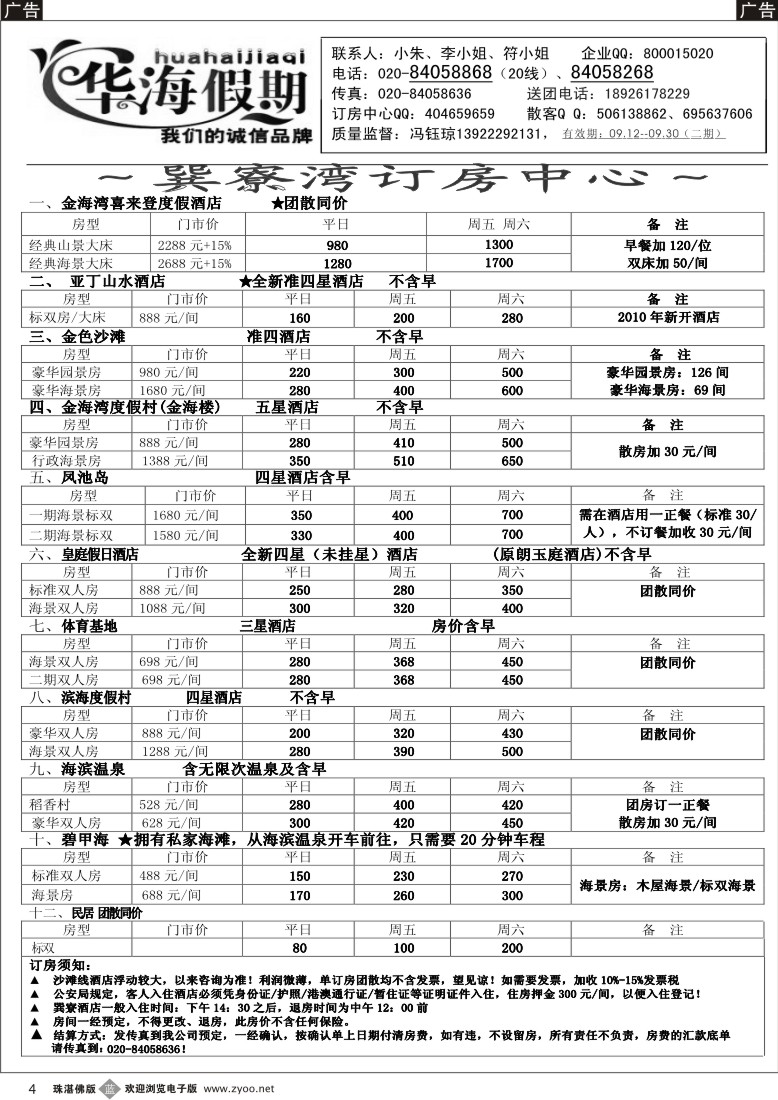 广告
广告
huahaijiaqi
华海假期
我们的诚信品牌
联系人：小朱、李小姐、符小姐 企业QQ：800015020
电话：020-84058868（20线）、84058268
传真：020-84058636 送团电话：18926178229
订房中心QQ：404659659 散客Q Q：506138862、695637606
质量监督：冯钰琼13922292131， 有效期：09.12--09.30（二期）
～巽寮湾订房中心～
一、金海湾喜来登度假酒店 ★团散同价
房型 门市价 平日 周五 周六 备 注
经典山景大床 2288 元+15% 980 1300 早餐加 120/位
经典海景大床 2688 元+15% 1280 1700 双床加 50/间
二、 亚丁山水酒店 ★全新准四星酒店 不含早
房型 门市价 平日 周五 周六 备 注
标双房/大床 888 元/间 160 200 280 2010 年新开酒店
三、金色沙滩 准四酒店 不含早
房型 门市价 平日 周五 周六 备 注
豪华园景房 980 元/间 220 300 500 豪华园景房：126 间
豪华海景房 1680 元/间 280 400 600 豪华海景房：69 间
四、金海湾度假村(金海楼) 五星酒店 不含早
房型 门市价 平日 周五 周六 备 注
豪华园景房 888 元/间 280 410 500 散房加 30 元/间
行政海景房 1388 元/间 350 510 650
五、凤池岛 四星酒店含早
房型 门市价 平日 周五 周六 备 注
一期海景标双 1680 元/间 350 400 700 需在酒店用一正餐（标准 30/
二期海景标双 1580 元/间 330 400 700 人），不订餐加收 30 元/间
六、皇庭假日酒店 全新四星（未挂星）酒店 (原朗玉庭酒店)不含早
房型 门市价 平日 周五 周六 备 注
标准双人房 888 元/间 250 280 350 团散同价
海景双人房 1088 元/间 300 320 400
七、体育基地 三星酒店 房价含早
房型 门市价 平日 周五 周六 备 注
海景双人房 698 元/间 280 368 450 团散同价
二期双人房 698 元/间 280 368 450
八、滨海度假村 四星酒店 不含早
房型 门市价 平日 周五 周六 备 注
豪华双人房 888 元/间 200 320 430 团散同价
海景双人房 1288 元/间 280 390 500
九、海滨温泉 含无限次温泉及含早
房型 门市价 平日 周五 周六 备 注
稻香村 528 元/间 280 400 420 团房订一正餐
豪华双人房 628 元/间 300 420 450 散房加 30 元/间
十、碧甲海 ★拥有私家海滩，从海滨温泉开车前往，只需要 20 分钟车程
房型 门市价 平日 周五 周六 备 注
标准双人房 488 元/间 150 230 270 海景房：木屋海景/标双海景
海景房 688 元/间 170 260 300
十二、民居 团散同价
房型 门市价 平日 周五 周六 备 注
标双 80 100 200
订房须知：
▲ 沙滩线酒店浮动较大，以来咨询为准！利润微薄，单订房团散均不含发票，望见谅！如需要发票，加收 10%-15%发票税
▲ 公安局规定，客人入住酒店必须凭身份证/护照/港澳通行证/暂住证等证明证件入住，住房押金 300 元/间，以便入住登记！
▲ 巽寮酒店一般入住时间：下午 14：30 之后，退房时间为中午 12：00 前
▲ 房间一经预定，不得更改、退房，此房价不含任何保险。
▲ 结算方式：发传真到我公司预定，一经确认，按确认单上日期付清房费，如有违，不设留房，所有责任不负责，房费的汇款底单
请传真到：020-84058636！
4 珠湛佛版 蓝 欢迎浏览电子版 www.zyoo.net